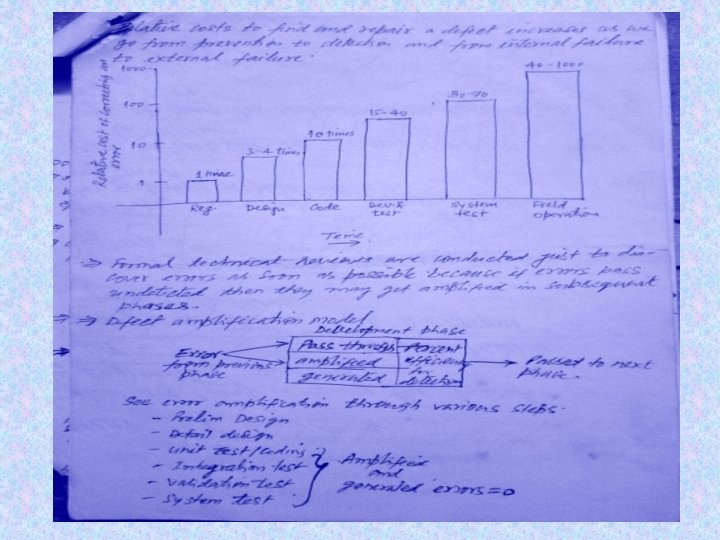 Relative costs to find and repair a defect increases as we
go from prevention to detection and from internal failure
to external failure.
Relative cost of correcting an
error
1000
100
10
1
1 time
3-4 times
10 times
15-40
30-70
40-1000
Req
Design
Code
Dev &
test
System
test
Field
operation
Time
⇒ Formal technical reviews are conducted just to dis-
cover errors as soon as possible because if errors pass
undetected then they may get amplified in subsequent
phases.
⇒ Defect amplification model
Development phase
Error
from previous
phase
Pass through
amplified
generated
Percent
efficiency
for
detection
Passed to next
phase.
See error amplification through various steps.
- Prelim Design
- Detail design
- Unit test/coding
- Integration test
- Validation test
- System test
Amplified
and
generated errors=0